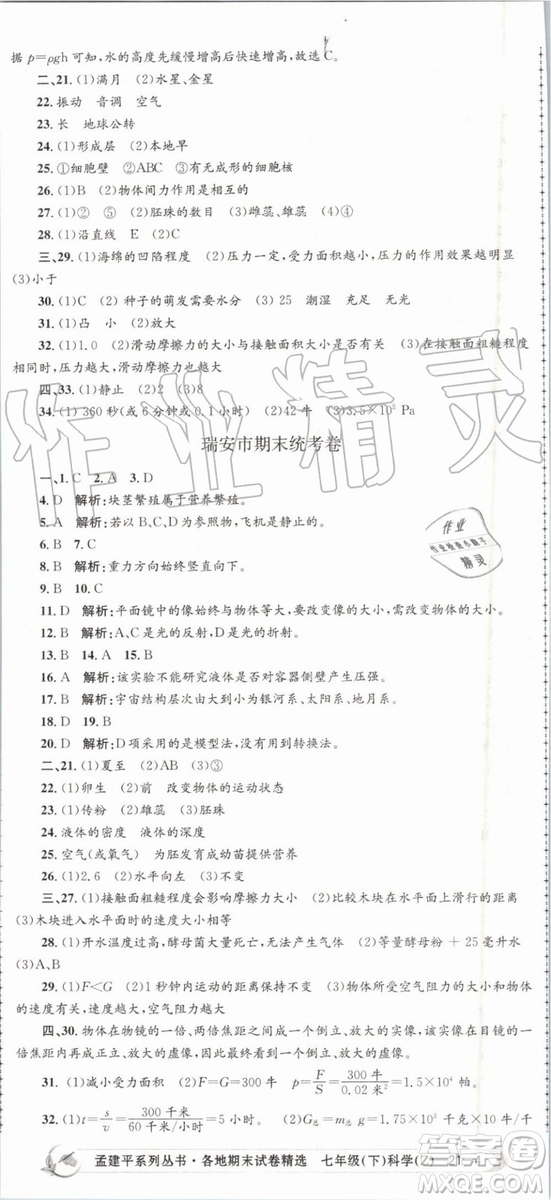 据 p=ρgh 可知,水的高度先缓慢增高后快速增高,故选 C。
二、21. (1)满月 (2)水星、金星
22. 振动 音调 空气
23. 长 地球公转
24. (1)形成层 (2)本地早
25. ①细胞壁 ②ABC ③有无成形的细胞核
26. (1)B (2)物体间力作用是相互的
27. (1)② ⑤ (2)胚珠的数目 (3)雌蕊、雄蕊 (4)④
28. (1)沿直线 E (2)C
三、29. (1)海绵的凹陷程度 (2)压力一定,受力面积越小,压力的作用效果越明显
(3)小于
30. (1)C (2)种子的萌发需要水分 (3)25 潮湿 充足 无光
31. (1)凸 小 (2)放大
32. (1)1.0 (2)滑动摩擦力的大小与接触面积的大小是否有关 (3)接触面粗糙程度
相同时,压力越大,滑动摩擦力也越大
四、33. (1)静止 (2)2 (3)8
34. (1)360 秒(或 6 分钟或 0.1 小时) (2)42 牛 (3)3.5×10⁵ Pa
瑞安市期末统考卷
一、1. C 2. A 3. D
4. D 解析:块茎繁殖属于营养繁殖。
5. A 解析:若以 B、C、D 为参照物,飞机是静止的。
6. B 7. C
8. B 解析:重力方向始终竖直向下。
9. B 10. C
11. D 解析:平面镜中的像始终与物体等大,要改变像的大小,要改变物体的大小。
12. B 解析:A、C 是光的反射,D 是光的折射。
13. B 14. A 15. B
16. A 解析:该实验不能研究液体是否对容器侧壁产生压强。
17. D 解析:宇宙结构层次由大到小为银河系、太阳系、地月系。
18. D 19. B
20. D 解析:D 项采用的是模型法,不属于转换法。
二、21. (1)夏至 (2)AB (3)③
22. (1)卵生 (2)前 改变物体的运动状态
23. (1)传粉 (2)雄蕊 (3)胚珠
24. 液体的密度 液体的深度
25. 空气(或氧气) 为胚发育成幼苗提供营养
26. (1)2.6 (2)不变
三、27. (1)接触面粗糙程度会影响摩擦力大小 (2)比较木块在水平面上滑行的距离
(3)木块进入水平面时的速度大小等
28. (1)开水温度过高,酵母菌大量死亡,失去作用 (2)面粉+酵母粉+25℃温水
(3)A、B
29. (1)F<G (2)1 秒钟内运动的距离保持不变 (3)物体所受空气阻力的大小与物体
的速度有关,速度越大,空气阻力越大
四、30. 物体在物镜的一倍、两倍焦距之间成一个倒立、放大的实像,该实像在目镜的一
倍焦距内,成一个正立、放大的虚像,最终看到的是一个倒立、放大的虚像。
31. (1)减小受力面积 (2)F=G=300 牛 p=F/S=300 牛/0.02 米²=1.5×10⁴ 帕
32. (1)t=s/v=300 千米/60 千米/小时=5 小时。 (2)G选=m选 g=1.75×10³ 千克×10 牛/千
孟建平系列丛书·各地期末试卷精选 七年级(下)科学(Z)
作业精灵
作业
作业检查小助手
精灵